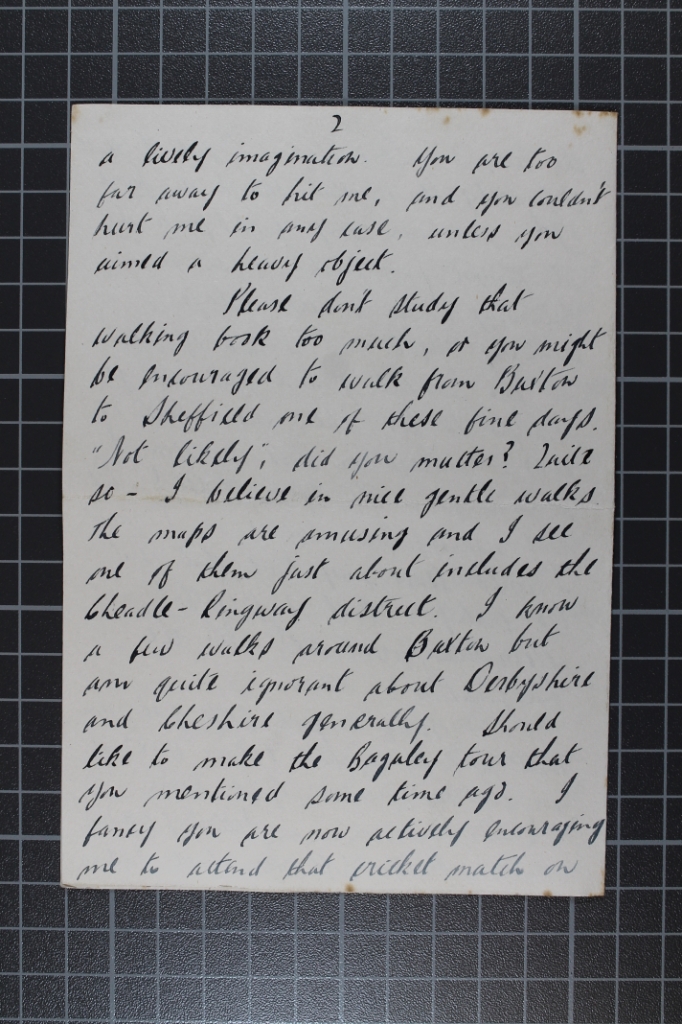 2
a lively imagination. You are too
far away to hit me, and you couldn't
hurt me in any case, unless you
aimed a heavy object.
Please don't study that
walking book too much, or you might
be encouraged to walk from Buxton
to Sheffield one of these fine days.
"Not likely", did you mutter? Quite
so - I believe in nice gentle walks.
The maps are amusing and I see
one of them just about includes the
Cheadle - Ringway district. I know
a few walks around Buxton but
am quite ignorant about Derbyshire
and Cheshire generally. Should
like to make the Baguley tour that
you mentioned some time ago. I
fancy you are now actively encouraging
me to attend that cricket match on